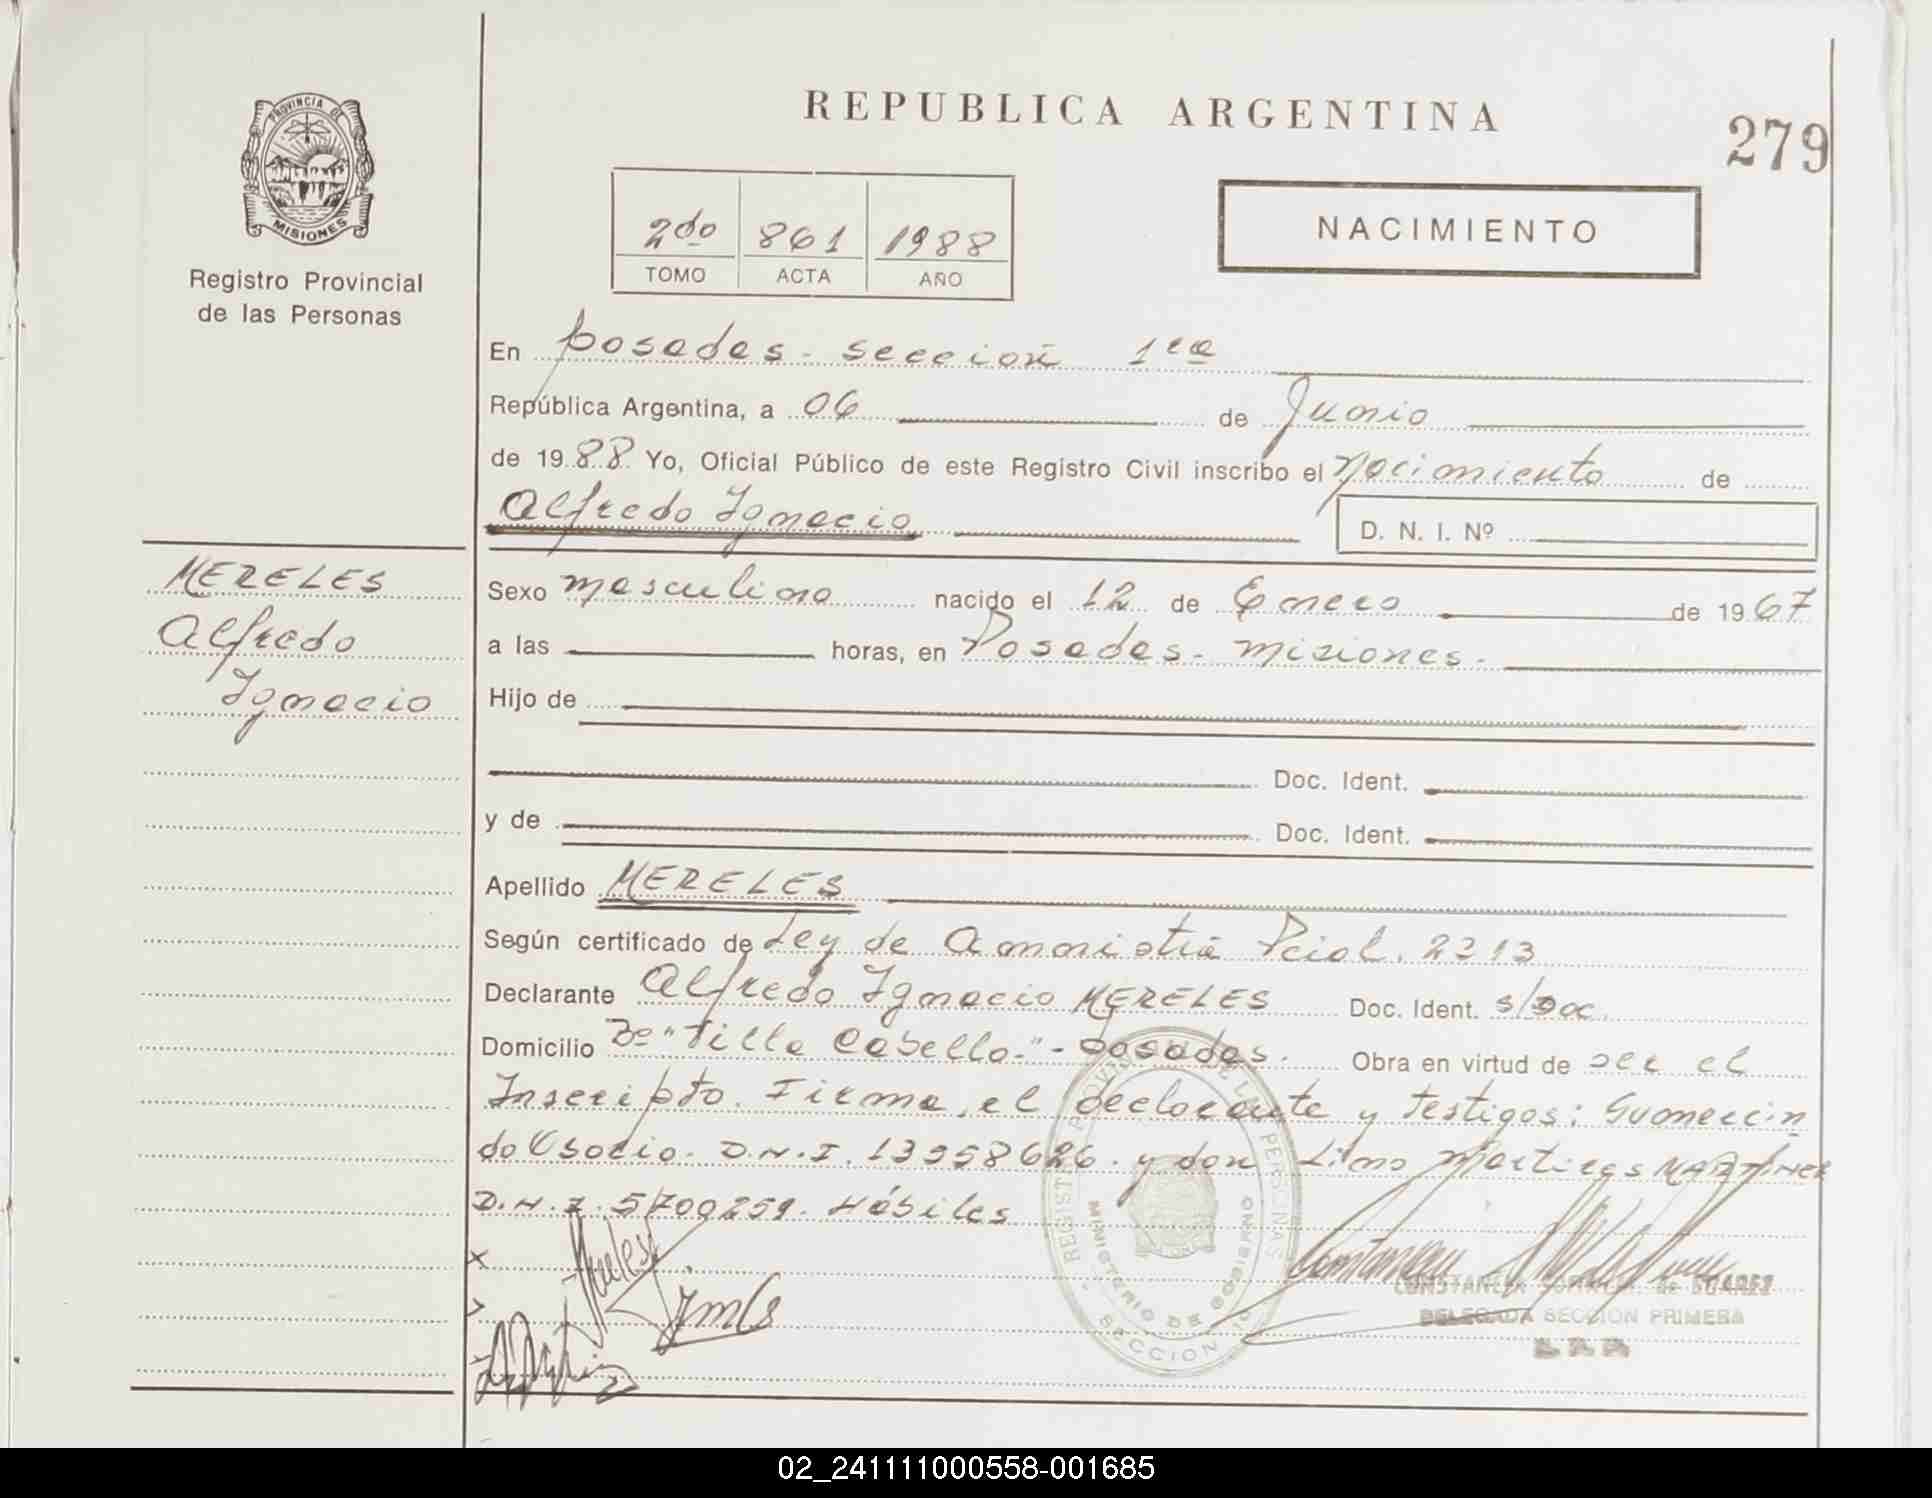 PROVINCIA DE
MISIONES
Registro Provincial
de las Personas
REPUBLICA ARGENTINA
279
2do 861 1988
TOMO ACTA AÑO
NACIMIENTO
En Posadas - seccion 1ra
República Argentina, a 06 de Junio
de 1988 Yo, Oficial Público de este Registro Civil inscribo el Nacimiento de
Alfredo Ignacio D. N. I. Nº
MERELES
Alfredo
Ignacio
Sexo masculino nacido el 12 de Enero de 1967
a las horas, en Posadas - Misiones.
Hijo de
Doc. Ident.
y de Doc. Ident.
Apellido MERELES
Según certificado de Ley de Amnistia Pcial. 2213
Declarante Alfredo Ignacio MERELES Doc. Ident. s/Doc.
Domicilio Bº "Villa Cabello-" - Posadas. Obra en virtud de ser el
Inscripto. Firma, el declarante y testigos: Gumercin
do Osorio. D.N.I. 13558626. y don Lino Martires MARTINEZ
D.N.I. 5700259. Hábiles
REGISTRO PROVINCIAL DE LAS PERSONAS
MINISTERIO DE GOBIERNO
SECCION
DE SUAREZ
DELEGADA SECCION PRIMERA
02_241111000558-001685